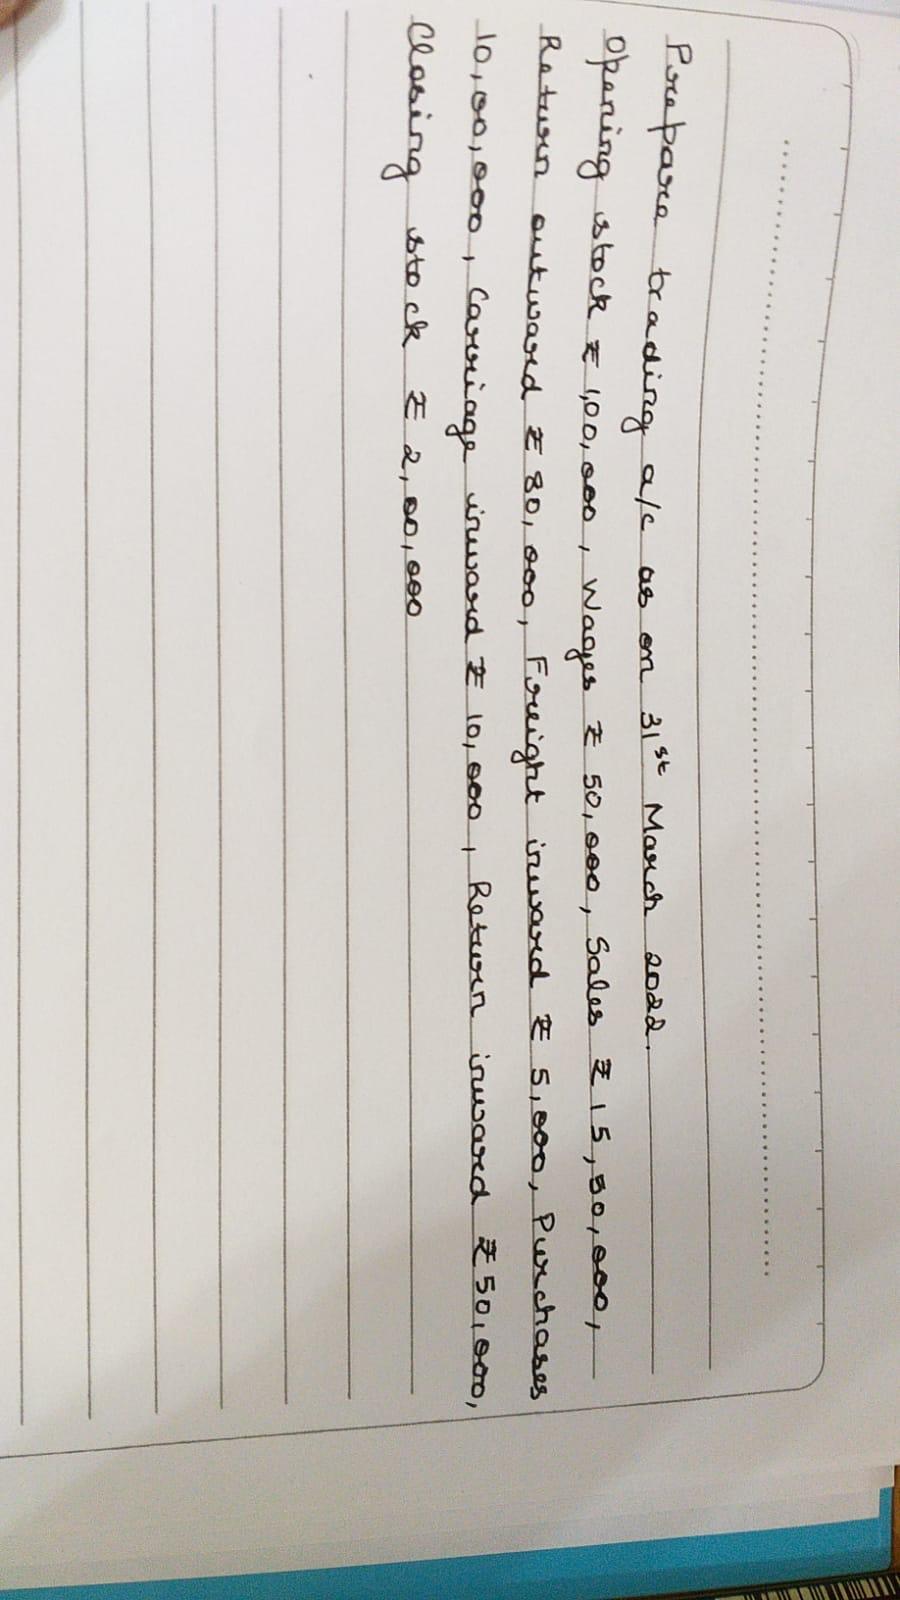 Prepare trading a/c as on 31st March 2022.
Opening stock ₹ 1,00,000, Wages ₹ 50,000, Sales ₹ 15,50,000,
Return outward ₹ 80,000, Freight inward ₹ 5,000, Purchases
10,00,000, Carriage inward ₹ 10,000, Return inward ₹ 50,000,
Closing stock ₹ 2,00,000